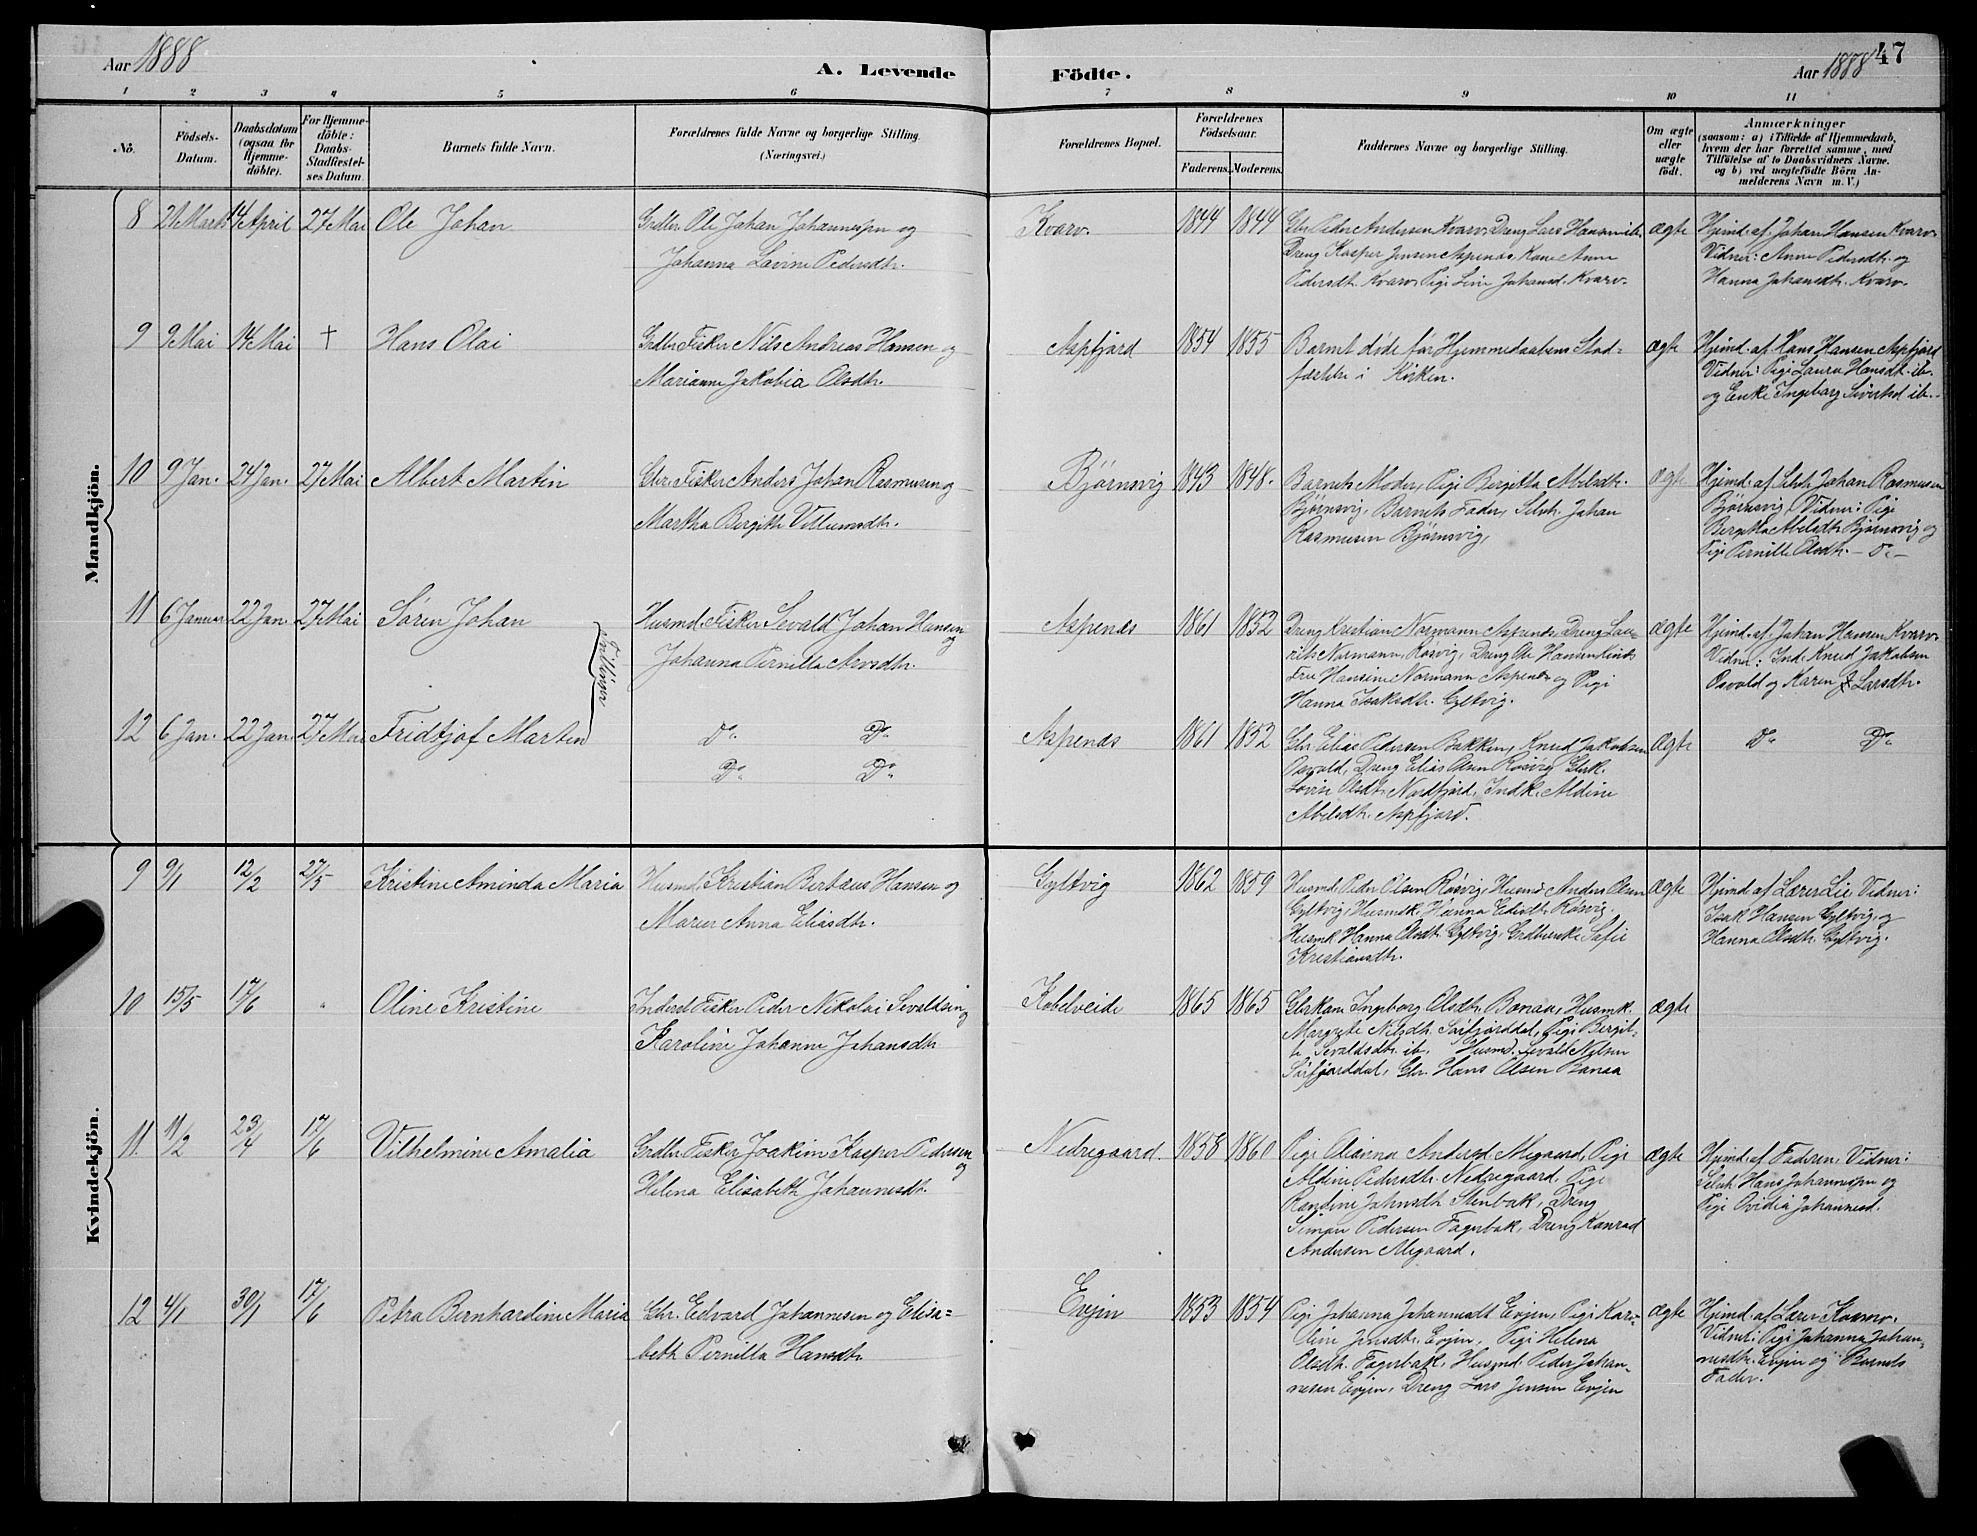 Aar 1888
A. Levende
Födte.
Aar 1888
47
1 2 3 4 5 6 7 8 9 10 11
No.
Födsels-
Datum.
Daabsdatum
(ogsaa for
Hjemme-
döbte).
For Hjemme-
döbte:
Daabs-
Stadfæstel-
ses Datum.
Barnets fulde Navn.
Forældrenes fulde Navne og borgerlige Stilling.
(Næringsvei.)
Forældrenes Bopæl.
Forældrenes
Födselsaar.
Faderens. Moderens.
Faddernes Navne og borgerlige Stilling.
Om ægte
eller
uægte
født.
Anmærkninger
(saasom: a) i Tilfælde af Hjemmedaab,
hvem der har forrettet samme, med
Tilföielse af to Daabsvidners Navne.
og b) ved uægtefödte Börn An-
melderens Navn m. V.)
Mandkjön.
8 21 Marts 14 April 27 Mai Ole Johan
Grdbr. Ole Johan Johannessen og
Johanna Lovine Pedersdtr.
Kvarv 1844 1844
Gbr Peder Andersen Kvarv, Dreng Lars Hansen ib.
Dreng Kasper Jensen Aspenæs, Kone Anne
Pedersdtr. Kvarv, Pige Line Johansd. Kvarv.
ægte
Hjemd. af Johan Hansen Kvarv.
Vidner: Anne Pedersdtr. og
Hanna Johansdtr. Kvarv.
9 9 Mai 14 Mai † Hans Olai
Grdbr. Fisker Nils Andreas Hansen og
Marianne Jakobia Olsdtr.
Aspfjord 1854 1855
Barnet døde før Hjemmedaabens Stad-
fæstelse i Kirken.
ægte
Hjemd. af Hans Hansen Aspfjord
Vidner: Pige Laura Hansdtr. ib.
og Enke Ingeborg Sivertsd ib.
10 9 Jan. 24 Jan. 27 Mai Albert Martin
Gbr. Fisker Anders Johan Rasmusen og
Martha Bergith Villumsdtr.
Bjørnsvig 1843 1848.
Barnets Moder, Pige Bergitta Abelsdtr.
Bjørnsvig, Barnets Fader, Selvh. Johan
Rasmusen Bjørnsvig,
ægte
Hjemd. af Selvh. Johan Rasmusen
Bjørnsvig, Vidner: Pige
Bergitta Abelsdtr. Bjørnsvig og
Pige Pernille Olsdtr. – Do –
11 6 Januar 22 Jan. 27 Mai Søren Johan
Tvillinger
Husmd. Fisker Sevald Johan Hansen
og
Johanna Pernilla Arosdtr.
Aspenæs 1861 1852
Dreng Kristian Normann Aspenæs, Dreng Lau-
rits Normann, Røsvig, Dreng Ole Hansen
Hansine Normann Aspenæs og Pige
Hanna Isaksdtr. Gyltvig.
ægte
Hjemd. af Johan Hansen Kvarv.
Vidner: Ind. Knud Jakobsen
Osvold og Karen Larsdtr.
12 6 Jan. 22 Jan. 27 Mai Fridtjof Martin
Do. Do.
Do. Do.
Aspenæs 1861 1852
Gbr. Elias Pedersen Bakken, Knud Jakobsen
Osvold, Dreng Elias Olsen Røsvig Gbrk.
Lovise Olsdtr. Nordfjord, Indk. Aldine
Abelsdtr. Aspfjord.
ægte
Do Do
Kvindekjön.
9 9/1 12/2 27/5 Kristine Aminda Maria
Husmd. Kristian Bertæus Hansen og
Maren Anna Eliasdtr.
Gyltvig 1862 1859
Husmd. Peder Olsen Røsvig, Husmd. Anders Olsen
Gyltvig, Husmk. Hanna Røsvig.
Husmk. Hanna Olsdtr. Gyltvig, Grdbrenke Sofie
Kristiansdtr.
ægte
Hjemd. af Lærer Lie Vidner:
Isak Hansen Gyltvig, og
Hanna Olsdtr. Gyltvig.
10 15/5 17/6 " Oline Kristine
Inderst Fisker Peder Nikolai Sevaldsen
og
Karoline Johanne Johansdtr.
Kobelveide 1865 1865
Gbrkone Ingeborg Olsdtr. Bonaa, Husmk.
Margrete Nilsdtr. Sørfjorddal, Pige Bergit-
te Sevaldsdtr. ib. Husmd. Sevald Nilsen
Sørfjorddal, Gbr. Hans Olsen Bonaa
ægte
11. 11/2 23/4 17/6 Vilhelmine Amalia
Grdbr. Fisker Joakim Kasper Pedersen
og
Helena Elisabeth Johannesdtr.
Nedregaard. 1858 1860
Pige Olianna Andersd. Megaard, Pige
Aldine Pedersdtr. Nedregaard, Pige
Randine Johnsdtr. Stenbak, Dreng
Simon Pedersen Fagerbak, Dreng Konrad
Andersen Megaard.
ægte
Hjemd. af Faderen, Vidner:
Selvh. Hans Johannessen og
Pige Ovidia Johannesd.
12 4/1 30/1 17/6 Petra Bernhardine Maria
Gbr. Edvard Johannesen og Elisa-
beth Pernilla Hansdtr.
Evjen 1853 1854
Pige Johanna Johannesdt. Evjen, Pige Kar-
oline Jensdtr. Evjen, Pige Helena
Olsdtr. Fagerbak, Husmd. Peder Johan-
nesen Evjen, Dreng Lars Jensen Evjen
ægte
Hjemd. af Lærer Kvarv.
Vidner: Pige Johanna Johan-
nesdtr. Evjen og Barnets
Fader.